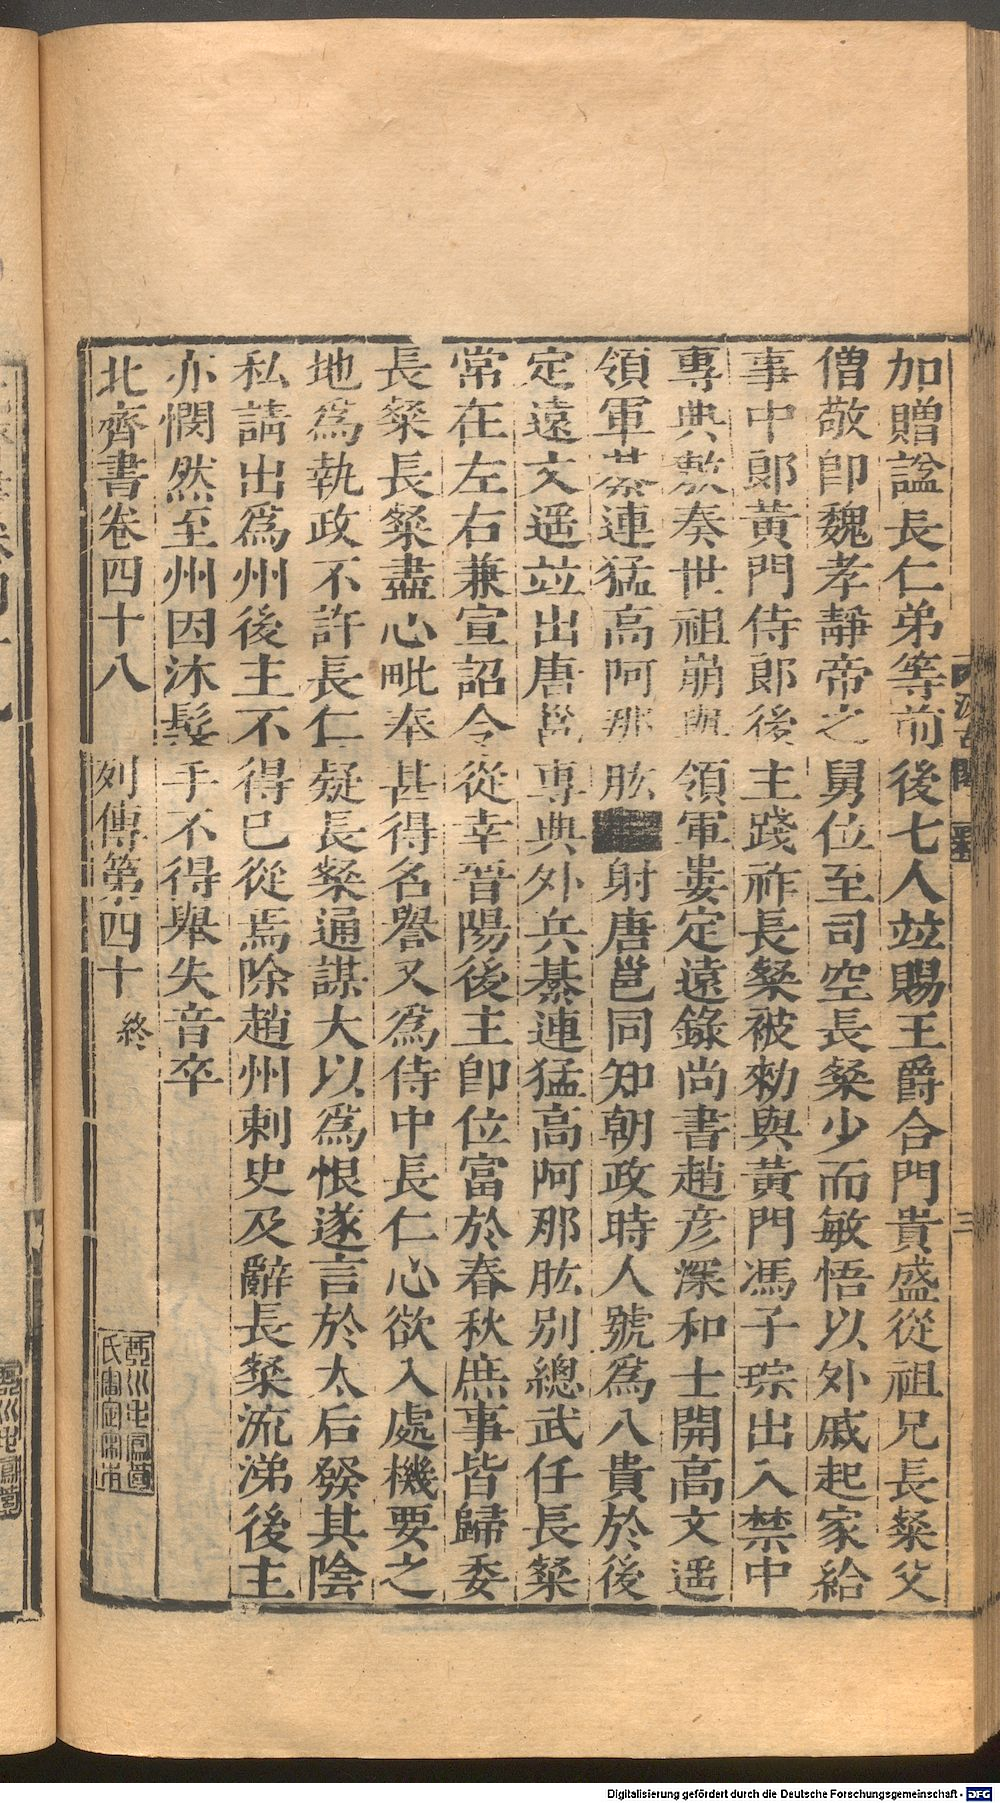 加贈謚長仁弟等前後七人竝賜王爵合門貴盛從祖兄長粲父
僧敬卽魏孝靜帝之舅位至司空長粲少而敏悟以外戚起家給
事中郞黃門侍郞後主踐祚長粲被勑與黃門馮子琮出入禁中
專典敷奏世祖崩與領軍婁定遠錄尚書趙彦深和士開高文遥
領軍綦連猛高阿那肱射唐邕同知朝政時人號爲八貴於後
定遠文遥竝出唐邕專典外兵綦連猛高阿那肱别總武任長粲
常在左右兼宣詔令從幸晉陽後主卽位富於春秋庶事皆歸委
長粲長粲盡心毗奉甚得名譽又爲侍中長仁心欲入處機要之
地爲執政不許長仁疑長粲通謀大以爲恨遂言於太后發其陰
私請出爲州後主不得已從焉除趙州刺史及辭長粲流涕後主
亦憫然至州因沐髮手不得舉失音卒
北齊書卷四十八 列傳第四十 終
汲古閣
三
Digitalisierung gefördert durch die Deutsche Forschungsgemeinschaft - DFG